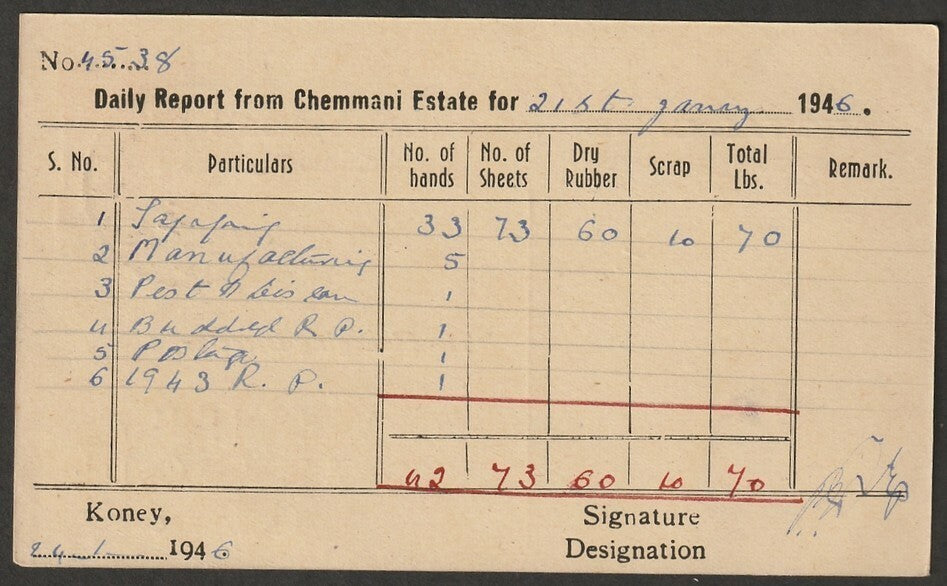 No. 4538
Daily Report from Chemmani Estate for 21st 1946.
S. No. Particulars No. of hands No. of Sheets Dry Rubber Scrap Total Lbs. Remark.
1 33 73 60 10 70
2 Manufacturing 5
3 Pest & 1
4 Budded R. P. 1
5 1
6 1943 R. P. 1
42 73 60 10 70
Koney, Signature
1946 Designation